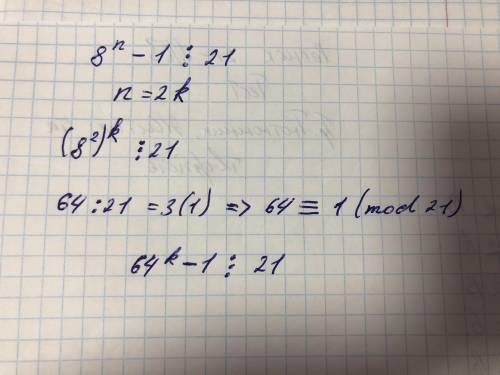 8ⁿ - 1 ⋮ 21
n = 2k
(8²)ᵏ ⋮ 21
64 : 21 = 3(1) => 64 ≡ 1 (mod 21)
64ᵏ - 1 ⋮ 21